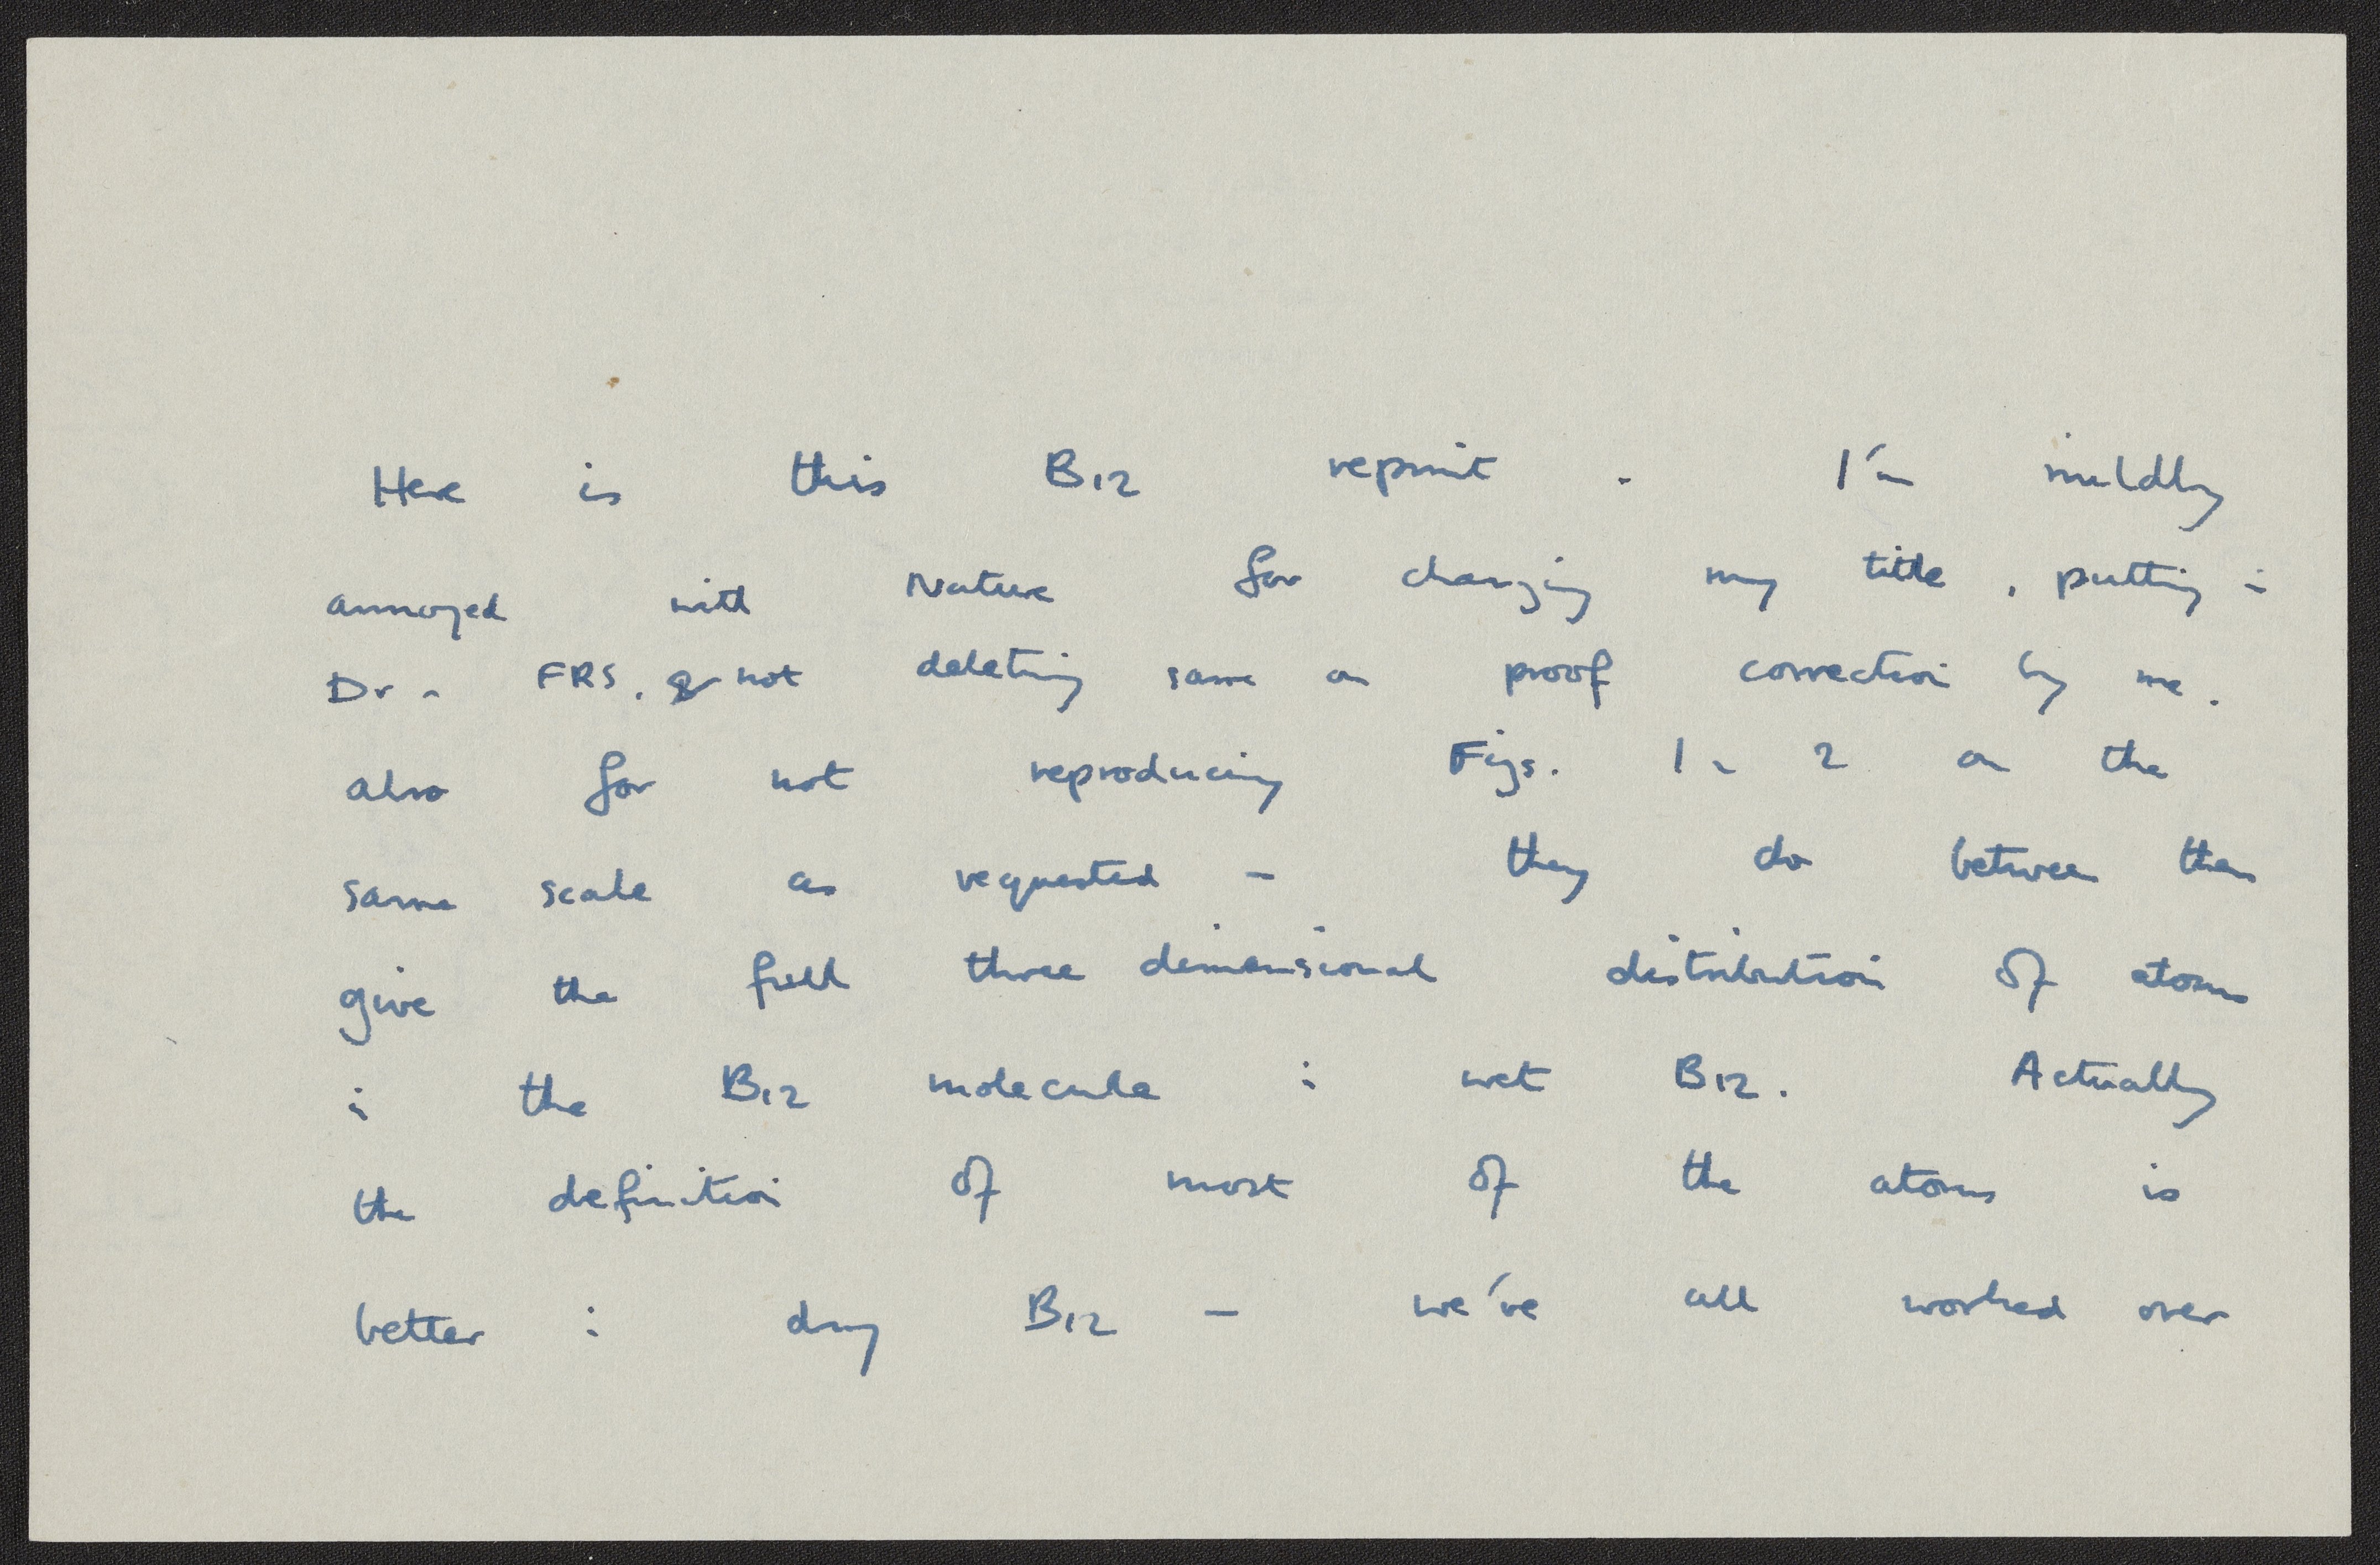 Here is this B12 reprint. I'm mildly
annoyed with Nature for changing my title, putting in
Dr - FRS, & not deleting same on proof correction by me.
also for not reproducing Figs. 1 & 2 on the
same scale as requested - they do between them
give the full three dimensional distribution of atoms
in the B12 molecule in wet B12. Actually
the definition of most of the atoms is
better in dry B12 - we've all worked over